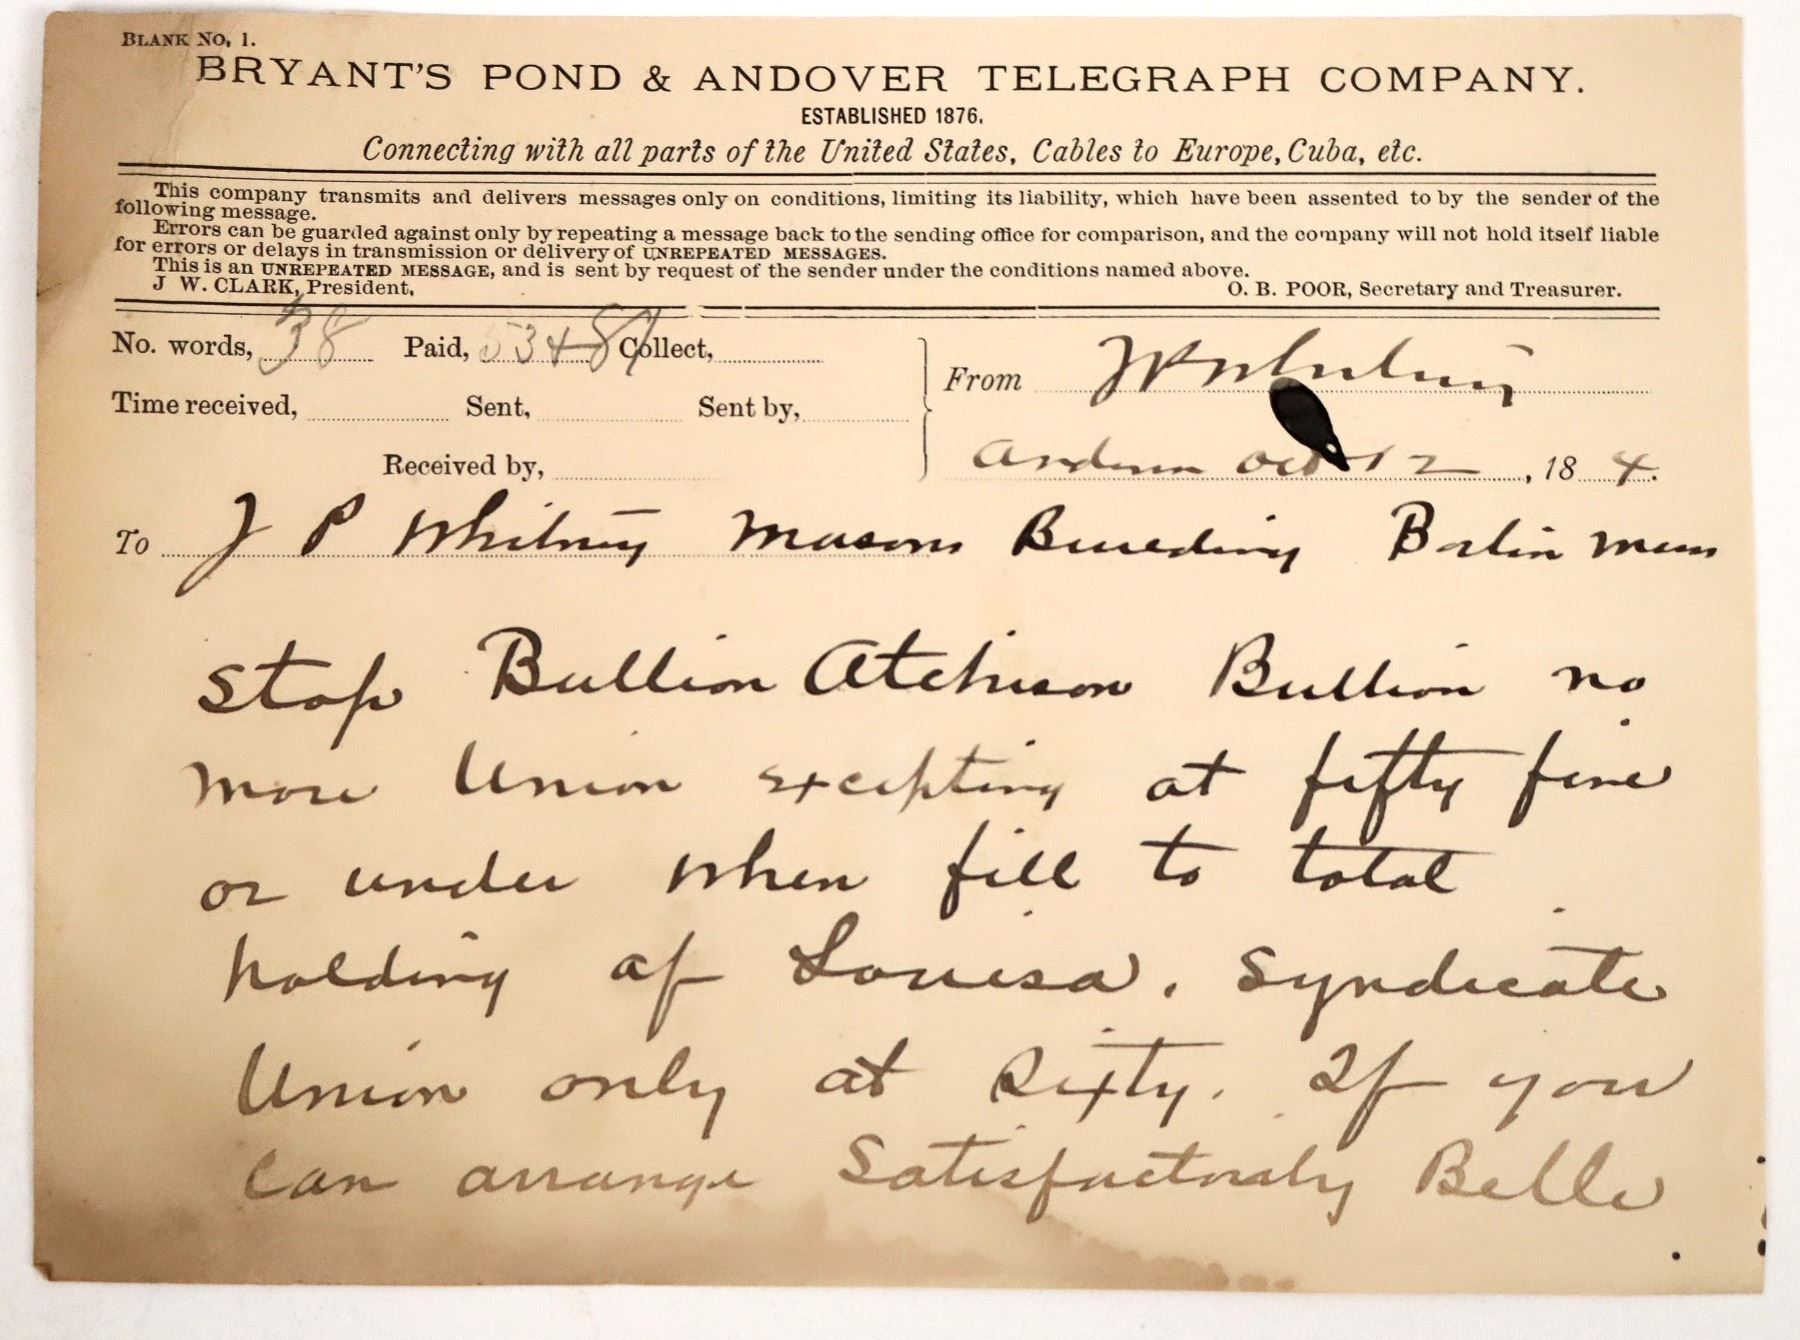 BLANK NO. 1.
BRYANT'S POND & ANDOVER TELEGRAPH COMPANY.
ESTABLISHED 1876.
Connecting with all parts of the United States, Cables to Europe, Cuba, etc.
This company transmits and delivers messages only on conditions, limiting its liability, which have been assented to by the sender of the
following message.
Errors can be guarded against only by repeating a message back to the sending office for comparison, and the company will not hold itself liable
for errors or delays in transmission or delivery of UNREPEATED MESSAGES.
This is an UNREPEATED MESSAGE, and is sent by request of the sender under the conditions named above.
J W. CLARK, President, O. B. POOR, Secretary and Treasurer.
No. words, 38 Paid, Collect,
From J P Whitney
Time received, Sent, Sent by,
Andover Oct 12, 18 4.
Received by,
To J P Whitney Masons Building Boston Mass
Stop Bullion Atchison Bullion no
more Union excepting at fifty five
or under when fill to total
holding of Louisa. Syndicate
Union only at Sixty. If you
can arrange Satisfactorily Belle